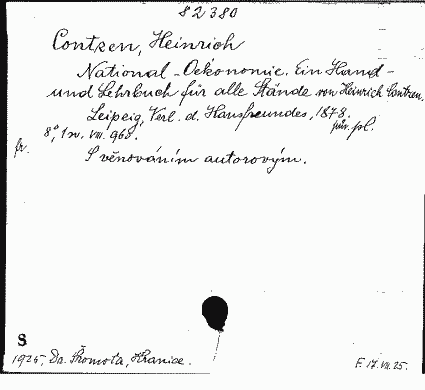 82380
Contzen, Heinrich
National-Oekonomie. Ein Hand-
und Lehrbuch für alle Stände von Heinrich Contzen.
Leipzig, Verl. d. Hausfreundes, 1878.
8°, 1 sv. VIII. 960. pův. pl.
fr.
S věnováním autorovým.
S
1925, Dr. Šromota, Hranice.
F. 17.VII.25.